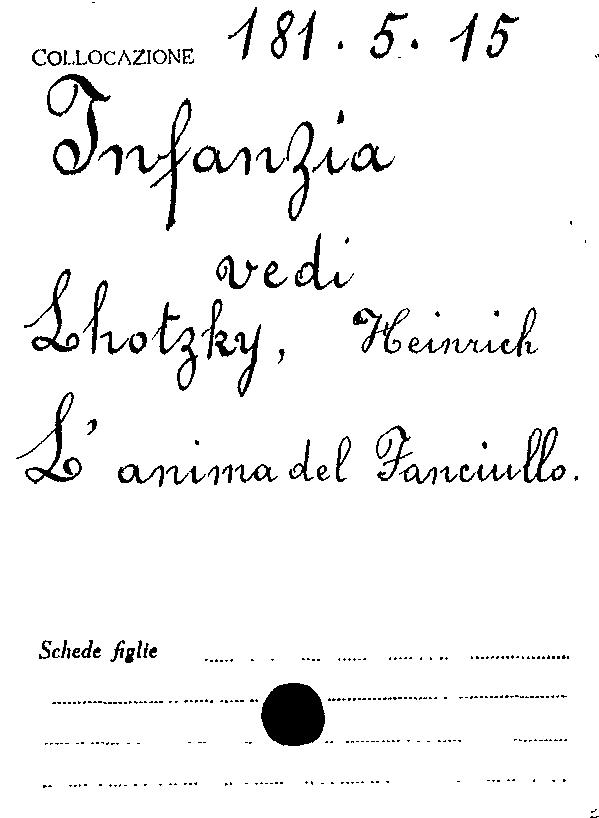 COLLOCAZIONE 181.5.15
Infanzia
vedi
Lhotzky, Heinrich
L'anima del Fanciullo.
Schede figlie